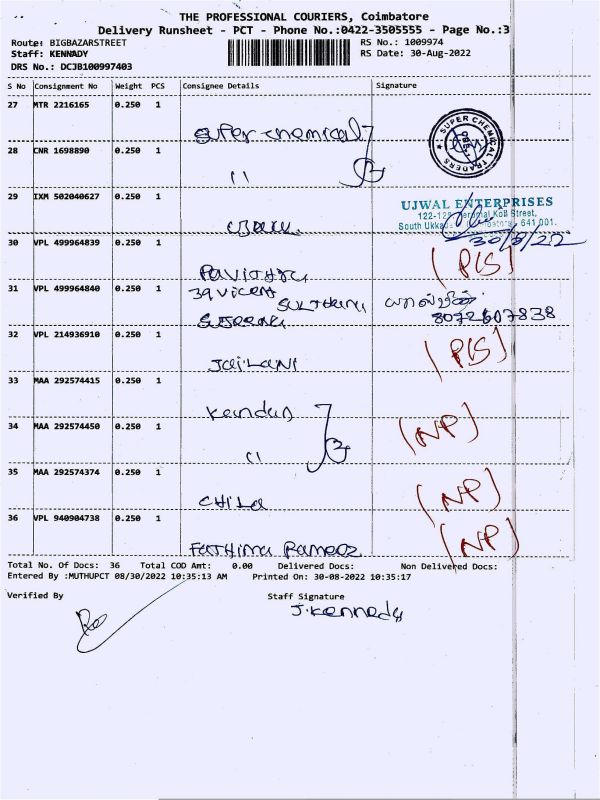 THE PROFESSIONAL COURIERS, Coimbatore
Delivery Runsheet - PCT - Phone No.:0422-3505555 - Page No.:3
Route: BIGBAZARSTREET RS No.: 1009974
Staff: KENNADY RS Date: 30-Aug-2022
DRS No.: DCJB100997403
S No Consignment No Weight PCS Consignee Details Signature
27 MTR 2216165 0.250 1
super chemical
SUPER CHEMICAL TRADERS
28 CNR 1698890 0.250 1
11
29 IXM 502040627 0.250 1
UJWAL ENTERPRISES
Street,
South Ukkadam 641 001.
30/8/22
30 VPL 499964839 0.250 1
Pavithra (PIS)
31 VPL 499964840 0.250 1
39 Vicent
8072607838
32 VPL 214936910 0.250 1
Jailani (PIS)
33 MAA 292574415 0.250 1
Kandan
34 MAA 292574450 0.250 1
11 (NP)
35 MAA 292574374 0.250 1
CHILA (NP)
36 VPL 940904738 0.250 1
Fathima Rameez (NP)
Total No. Of Docs: 36 Total COD Amt: 0.00 Delivered Docs: Non Delivered Docs:
Entered By :MUTHUPCT 08/30/2022 10:35:13 AM Printed On: 30-08-2022 10:35:17
Verified By Staff Signature
J. Kennady